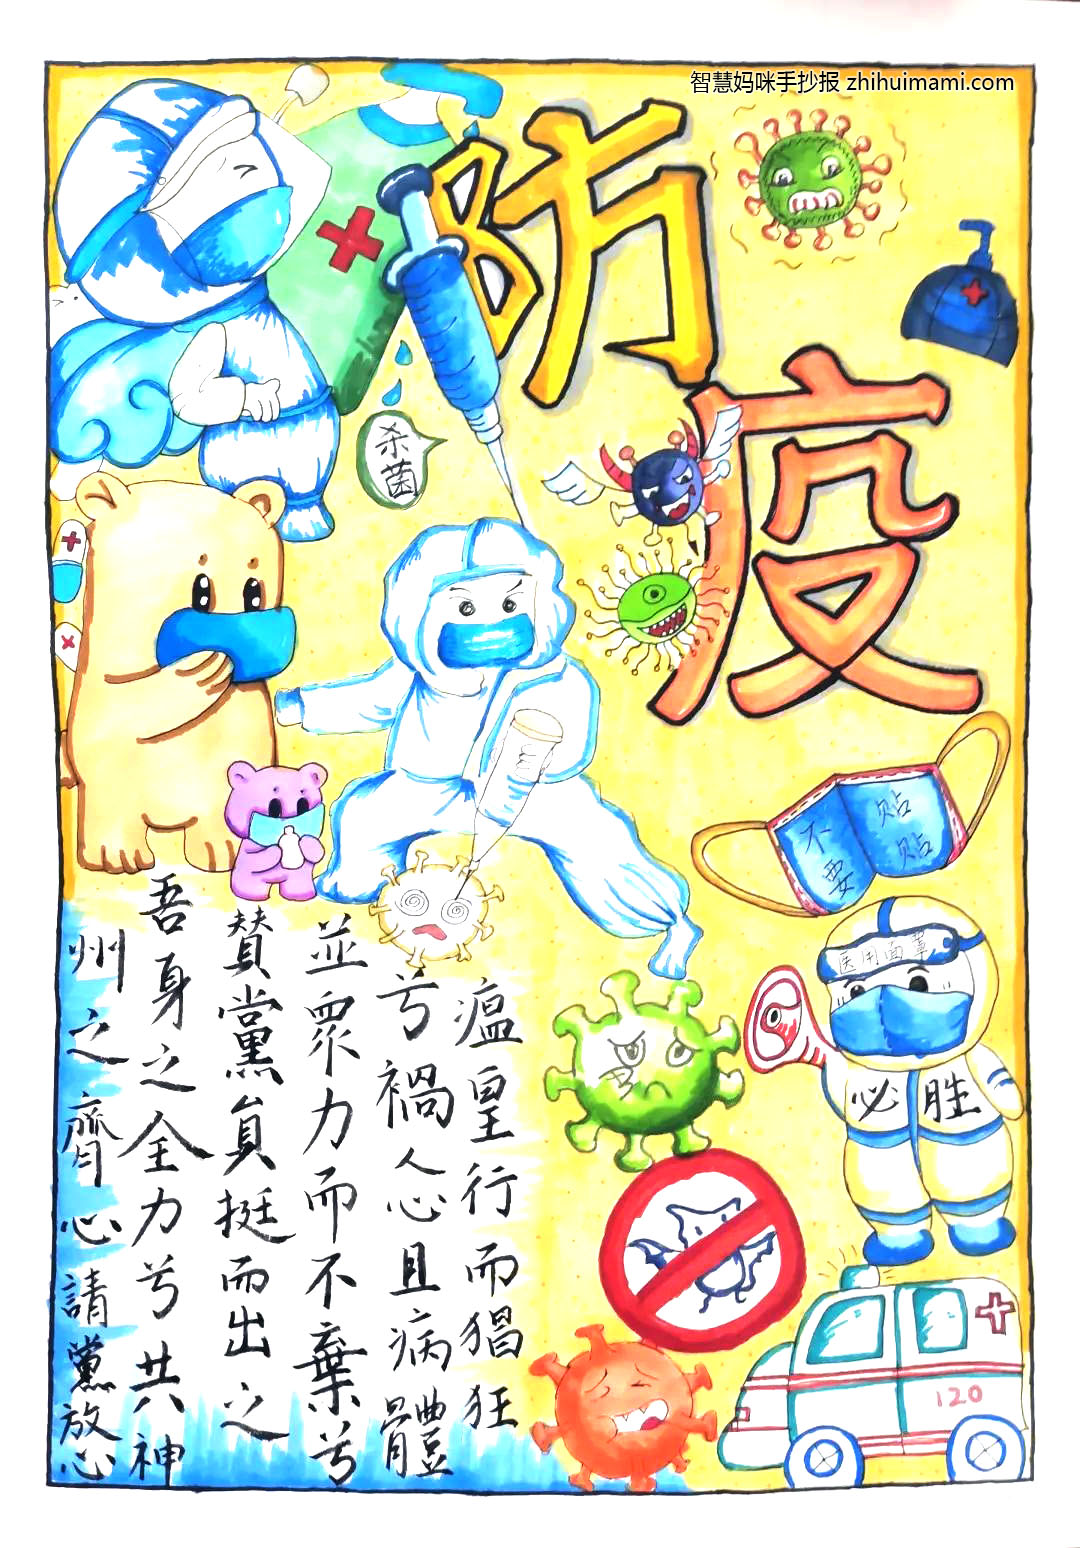 智慧妈咪手抄报 zhihuimami.com
防疫
杀菌
不要
贴贴
医用面罩
必胜
120
瘟皇行而猖狂
兮禍人心且病體
並眾力而不棄兮
賛黨員挺而出之
吾身之全力兮共神
州之齊心請黨放心